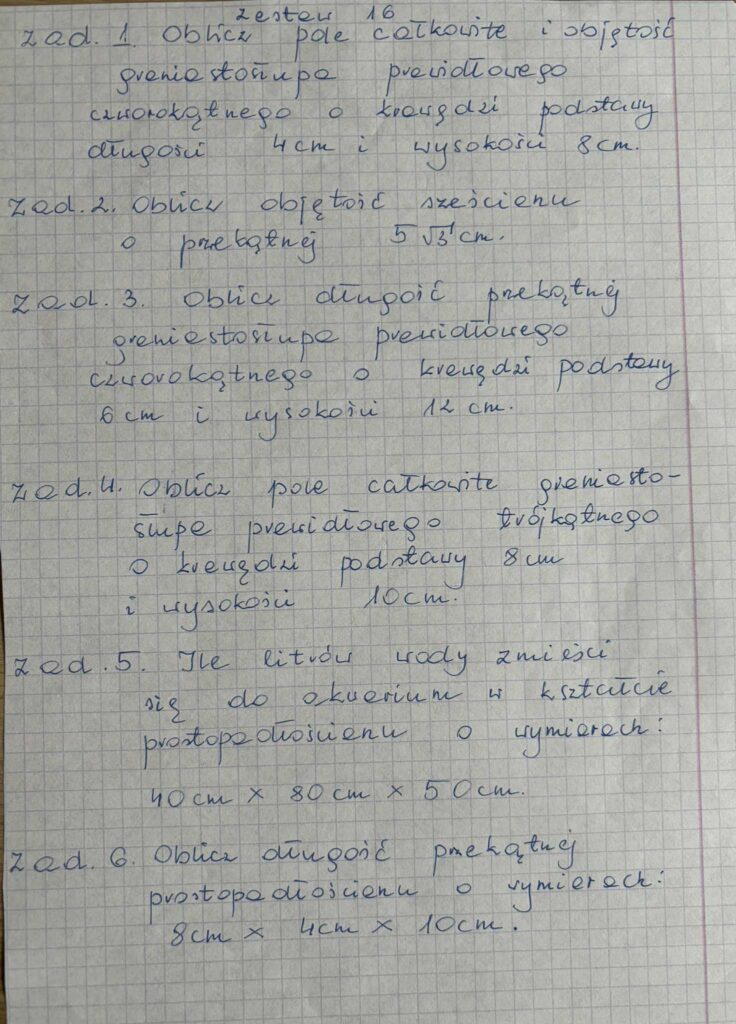 Zestaw 16
Zad. 1. Oblicz pole całkowite i objętość
graniastosłupa prawidłowego
czworokątnego o krawędzi podstawy
długości 4cm i wysokości 8cm.
Zad. 2. Oblicz objętość sześcianu
o przekątnej 5√3 cm.
Zad. 3. Oblicz długość przekątnej
graniastosłupa prawidłowego
czworokątnego o krawędzi podstawy
6cm i wysokości 12 cm.
Zad. 4. Oblicz pole całkowite graniasto-
słupa prawidłowego trójkątnego
o krawędzi podstawy 8cm
i wysokości 10cm.
Zad. 5. Ile litrów wody zmieści
się do akwarium w kształcie
prostopadłościanu o wymiarach:
40cm × 80cm × 50cm.
Zad. 6. Oblicz długość przekątnej
prostopadłościanu o wymiarach:
8cm × 4cm × 10cm.